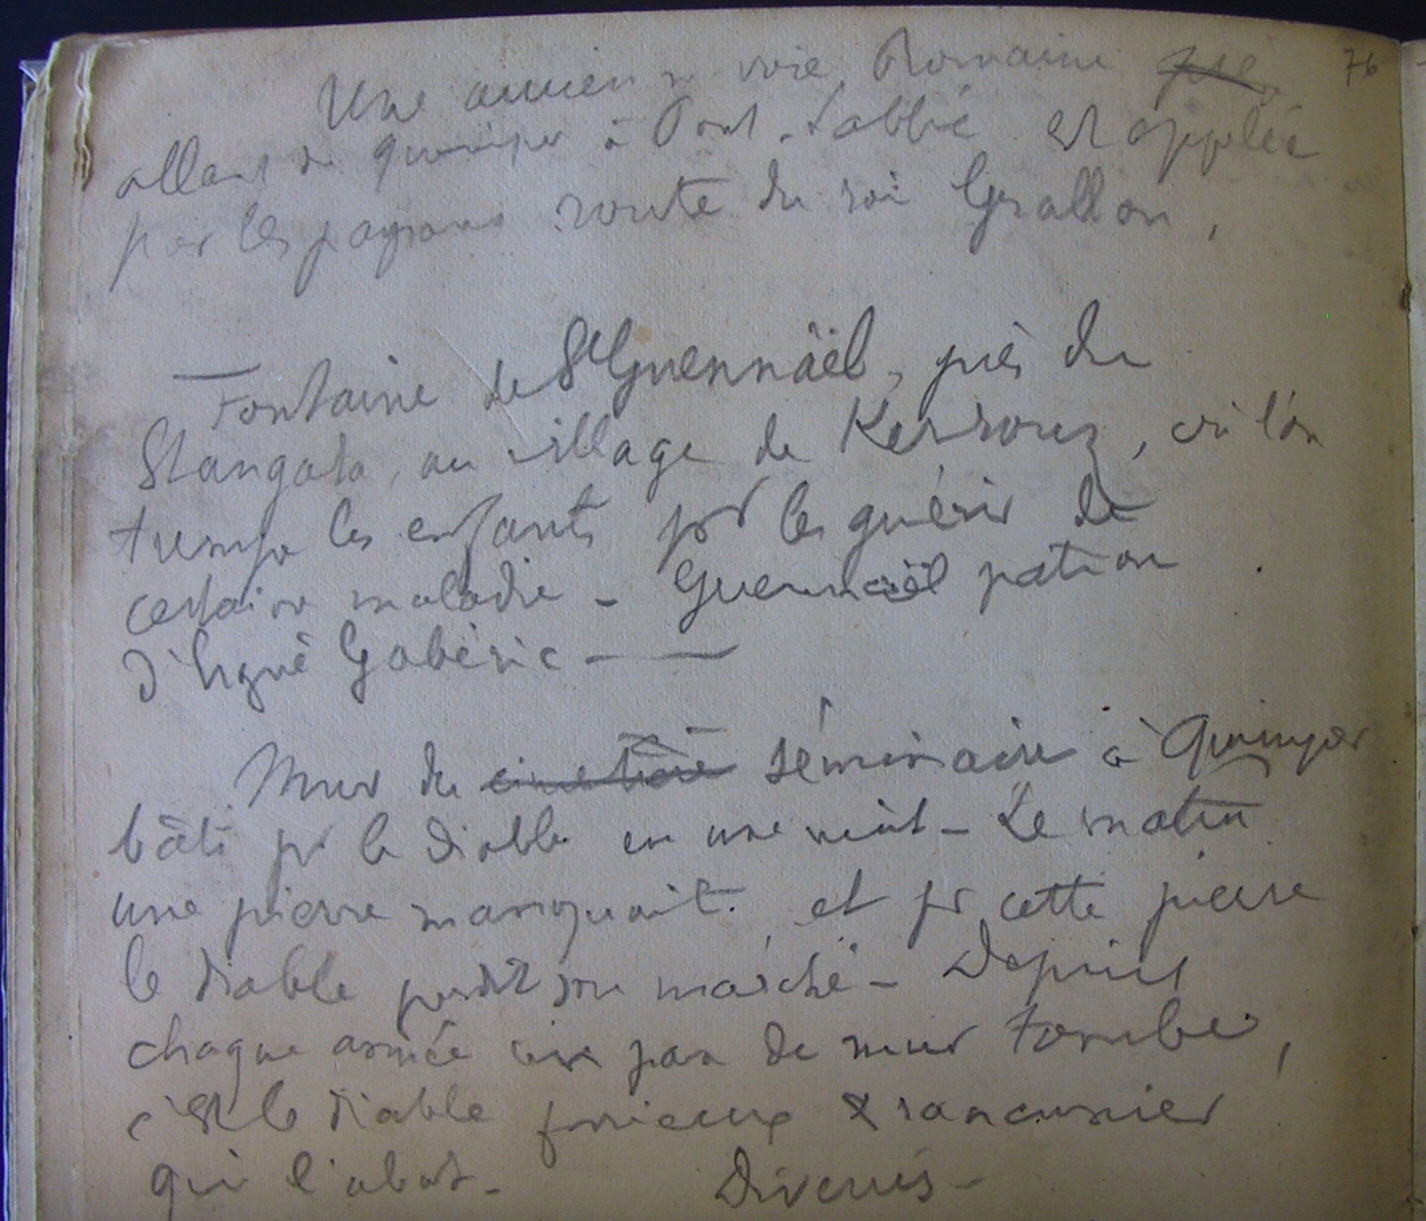 76
Une ancienne voie Romaine
allant de Quimper à Pont-Labbé est applée
par les paysans route du roi Grallon,
Fontaine de St Guennaël, près du
Stangala, au village de Kerrouz, où l'on
trempe les enfants pr les guérir de
certaine maladie - Guennaël patron
d'Ergué Gabéric -
Mur du cimetière séminaire à Quimper
bâti pr le diable en une nuit - Le matin
une pierre manquait. et pr cette pierre
le diable perdit son marché - Depuis
chaque année un pan de mur tombe,
c'est le diable furieux & rancunier
qui l'abat - Divers -